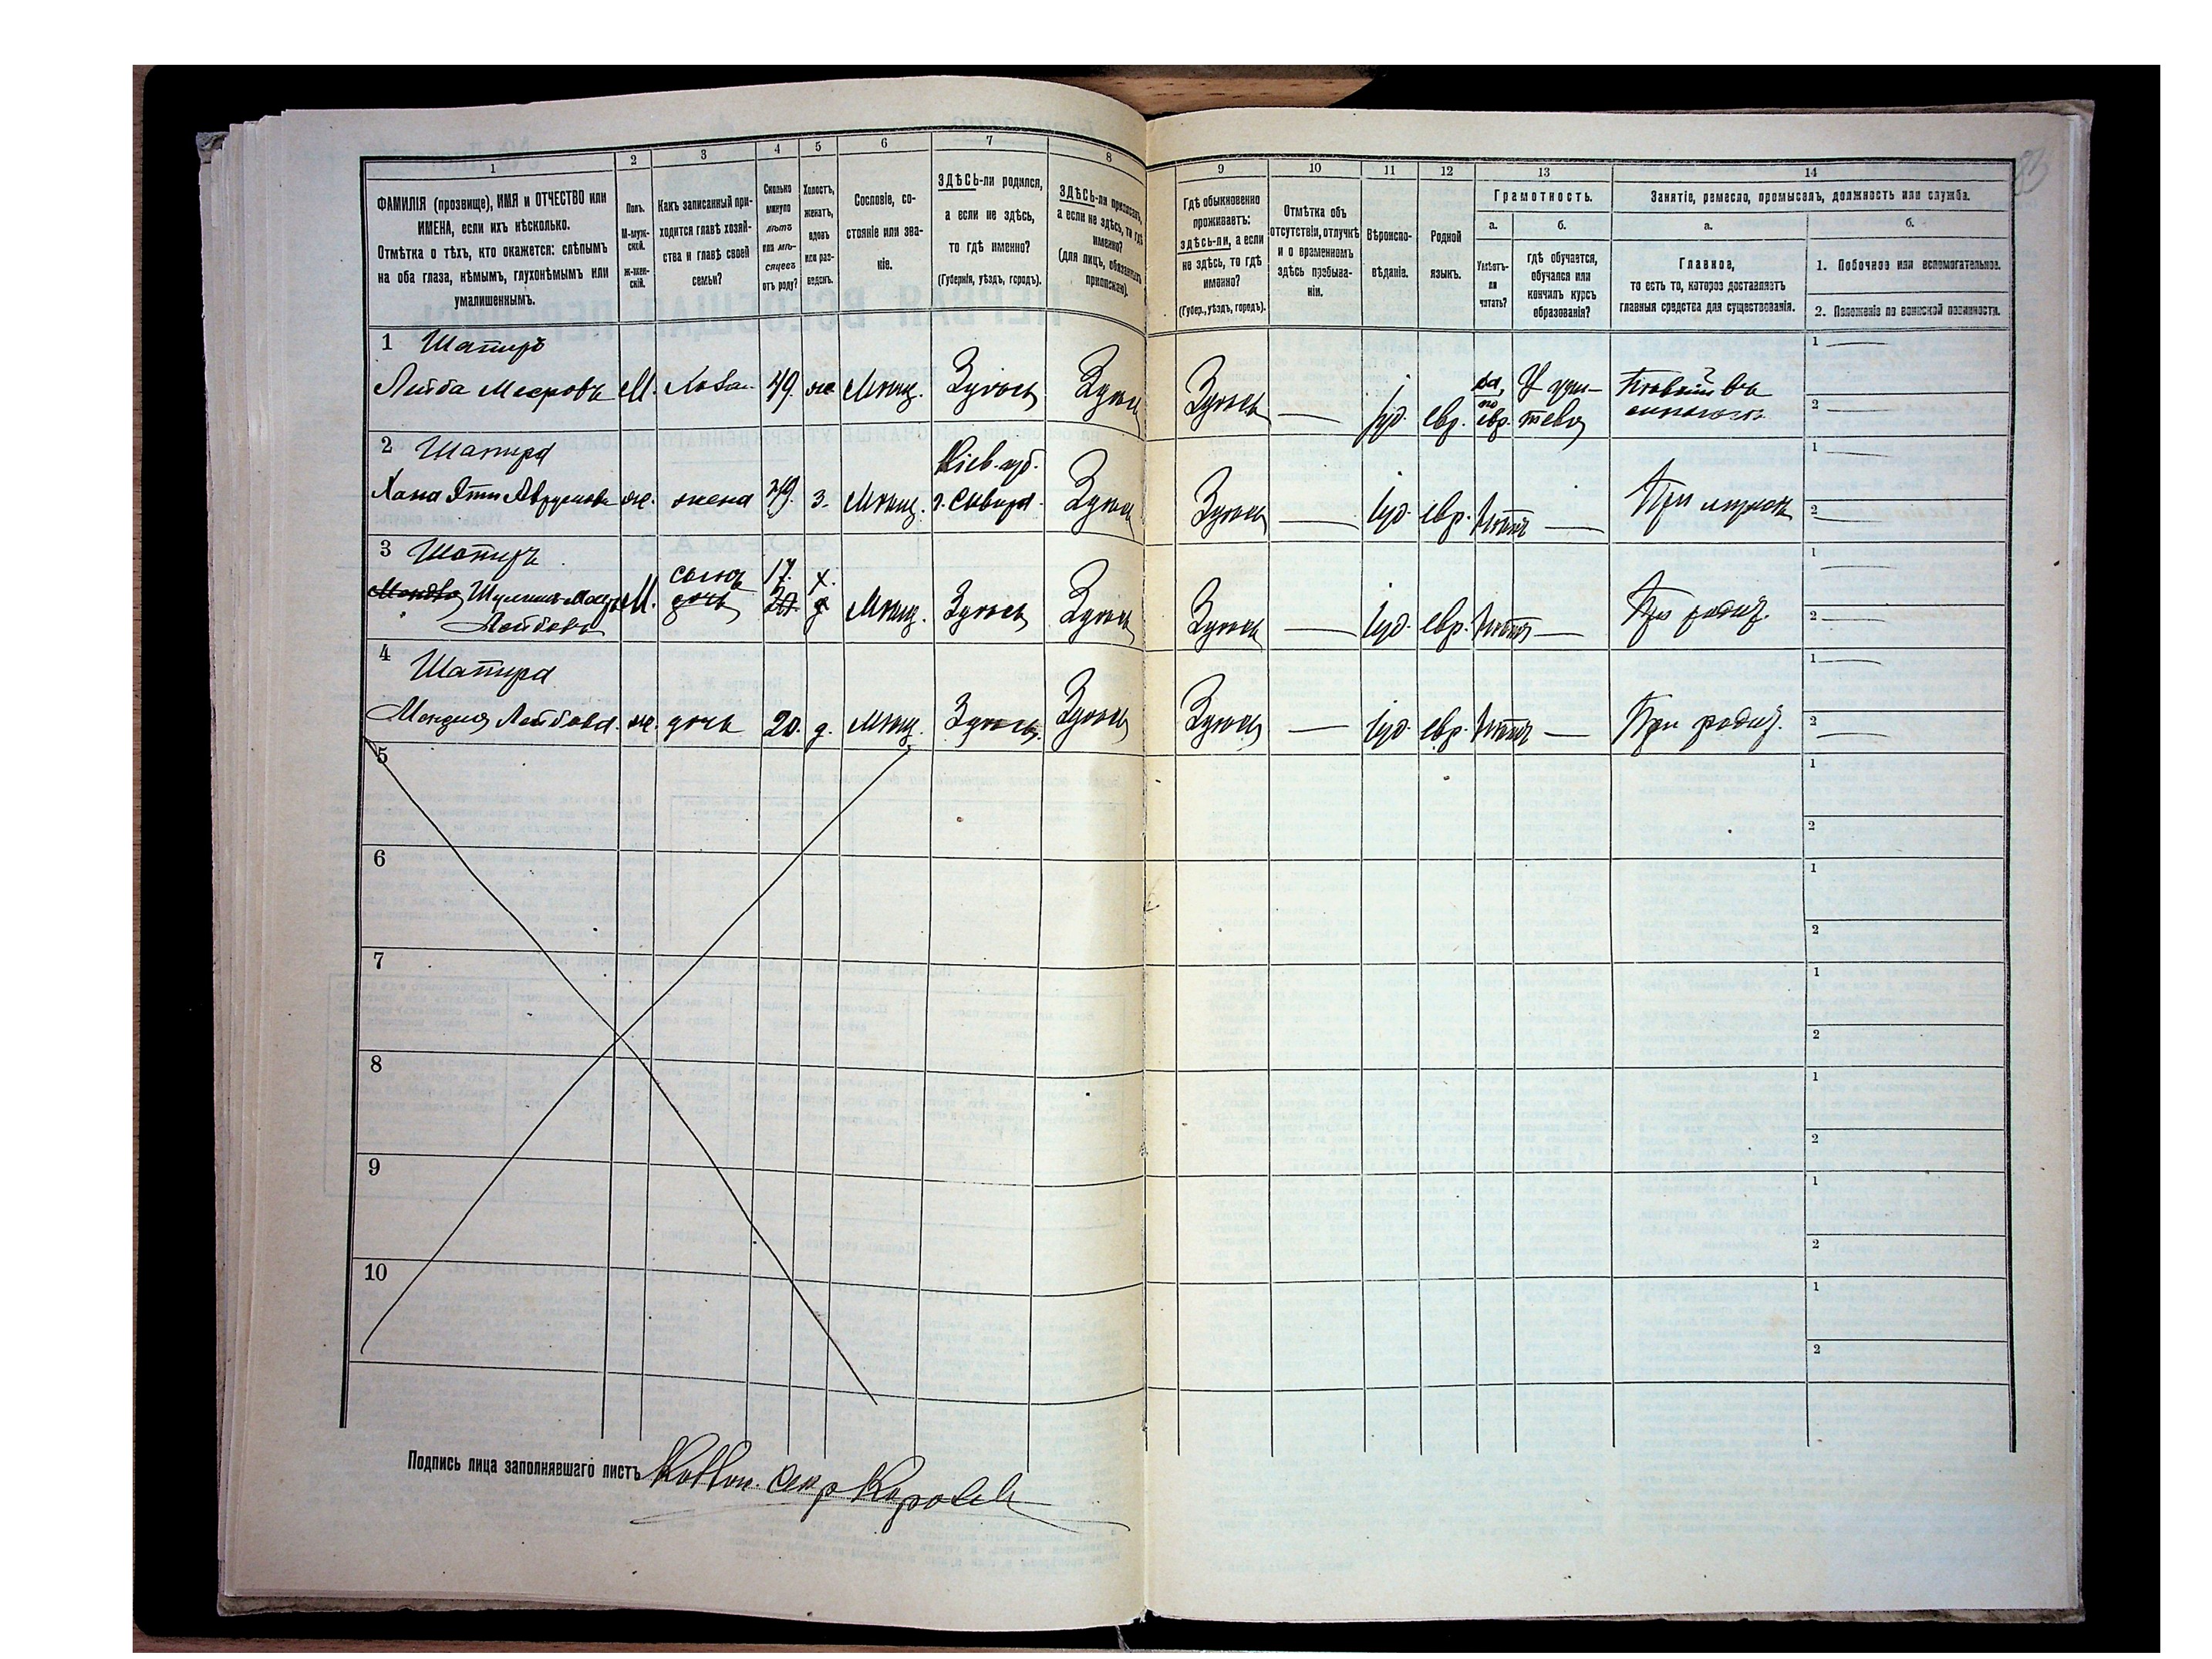 1 2 3 4 5 6 7 8
ФАМИЛІЯ (прозвище), ИМЯ и ОТЧЕСТВО или
ИМЕНА, если ихъ нѣсколько.
Отмѣтка о тѣхъ, кто окажется: слѣпымъ
на оба глаза, нѣмымъ, глухонѣмымъ или
умалишеннымъ.
Полъ.
М-муж-
ской.
Ж-жен-
скій.
Какъ записанный при-
ходится главѣ хозяй-
ства и главѣ своей
семьи?
Сколько
минуло
лѣтъ
или мѣ-
сяцевъ
отъ роду?
Холостъ,
женатъ,
вдовъ
или раз-
веденъ.
Сословіе, со-
стояніе или зва-
ніе.
ЗДѢСЬ-ли родился,
а если не здѣсь,
то гдѣ именно?
(Губернія, уѣздъ, городъ).
ЗДѢСЬ-ли приписанъ,
а если не здѣсь, то гдѣ
именно?
(для лицъ, обязанныхъ
припискою).
1 Шапиръ
Лейба Меэровъ М. Хозя. 49. же Мѣщ. Здѣсь Здѣсь
2 Шапира Кіев. губ.
Хана Эти Аврумова же. жена 49. з. Мѣщ. г. Сквира. Здѣсь
3 Шапиръ
сынъ 17. х.
Мондля Шулимъ М. дочь 20. д Мѣщ. Здѣсь Здѣсь
Лейбовъ
4 Шапира
Мондля Лейбова. же. дочь 20. д. Мѣщ. Здѣсь. Здѣсь
5
6
7
8
9
10
Подпись лица заполнявшаго листъ
9 10 11 12 13 14
Гдѣ обыкновенно
проживаетъ:
здѣсь-ли, а если
не здѣсь, то гдѣ
именно?
(Губер., уѣздъ, городъ).
Отмѣтка объ
отсутствіи, отлучкѣ
и о временномъ
здѣсь пребыва-
ніи.
Вѣроиспо-
вѣданіе.
Родной
языкъ.
Грамотность.
а.
Умѣетъ-
ли
читать?
б.
гдѣ обучается,
обучался или
кончилъ курсъ
образованія?
Занятіе, ремесло, промыселъ, должность или служба.
а.
Главное,
то есть то, которое доставляетъ
главныя средства для существованія.
б.
1. Побочное или вспомогательное.
2. Положеніе по воинской повинности.
83
Здѣсь — Іуд. евр. да, по евр. У учи-
теля
1 —
2 —
Здѣсь — Іуд. евр. Нѣтъ — При мужѣ
1 —
2 —
Здѣсь — Іуд. евр. Нѣтъ — При родит.
1 —
2 —
Здѣсь — Іуд. евр. Нѣтъ — При родит.
1 —
2 —
1
2
1
2
1
2
1
2
1
2
1
2